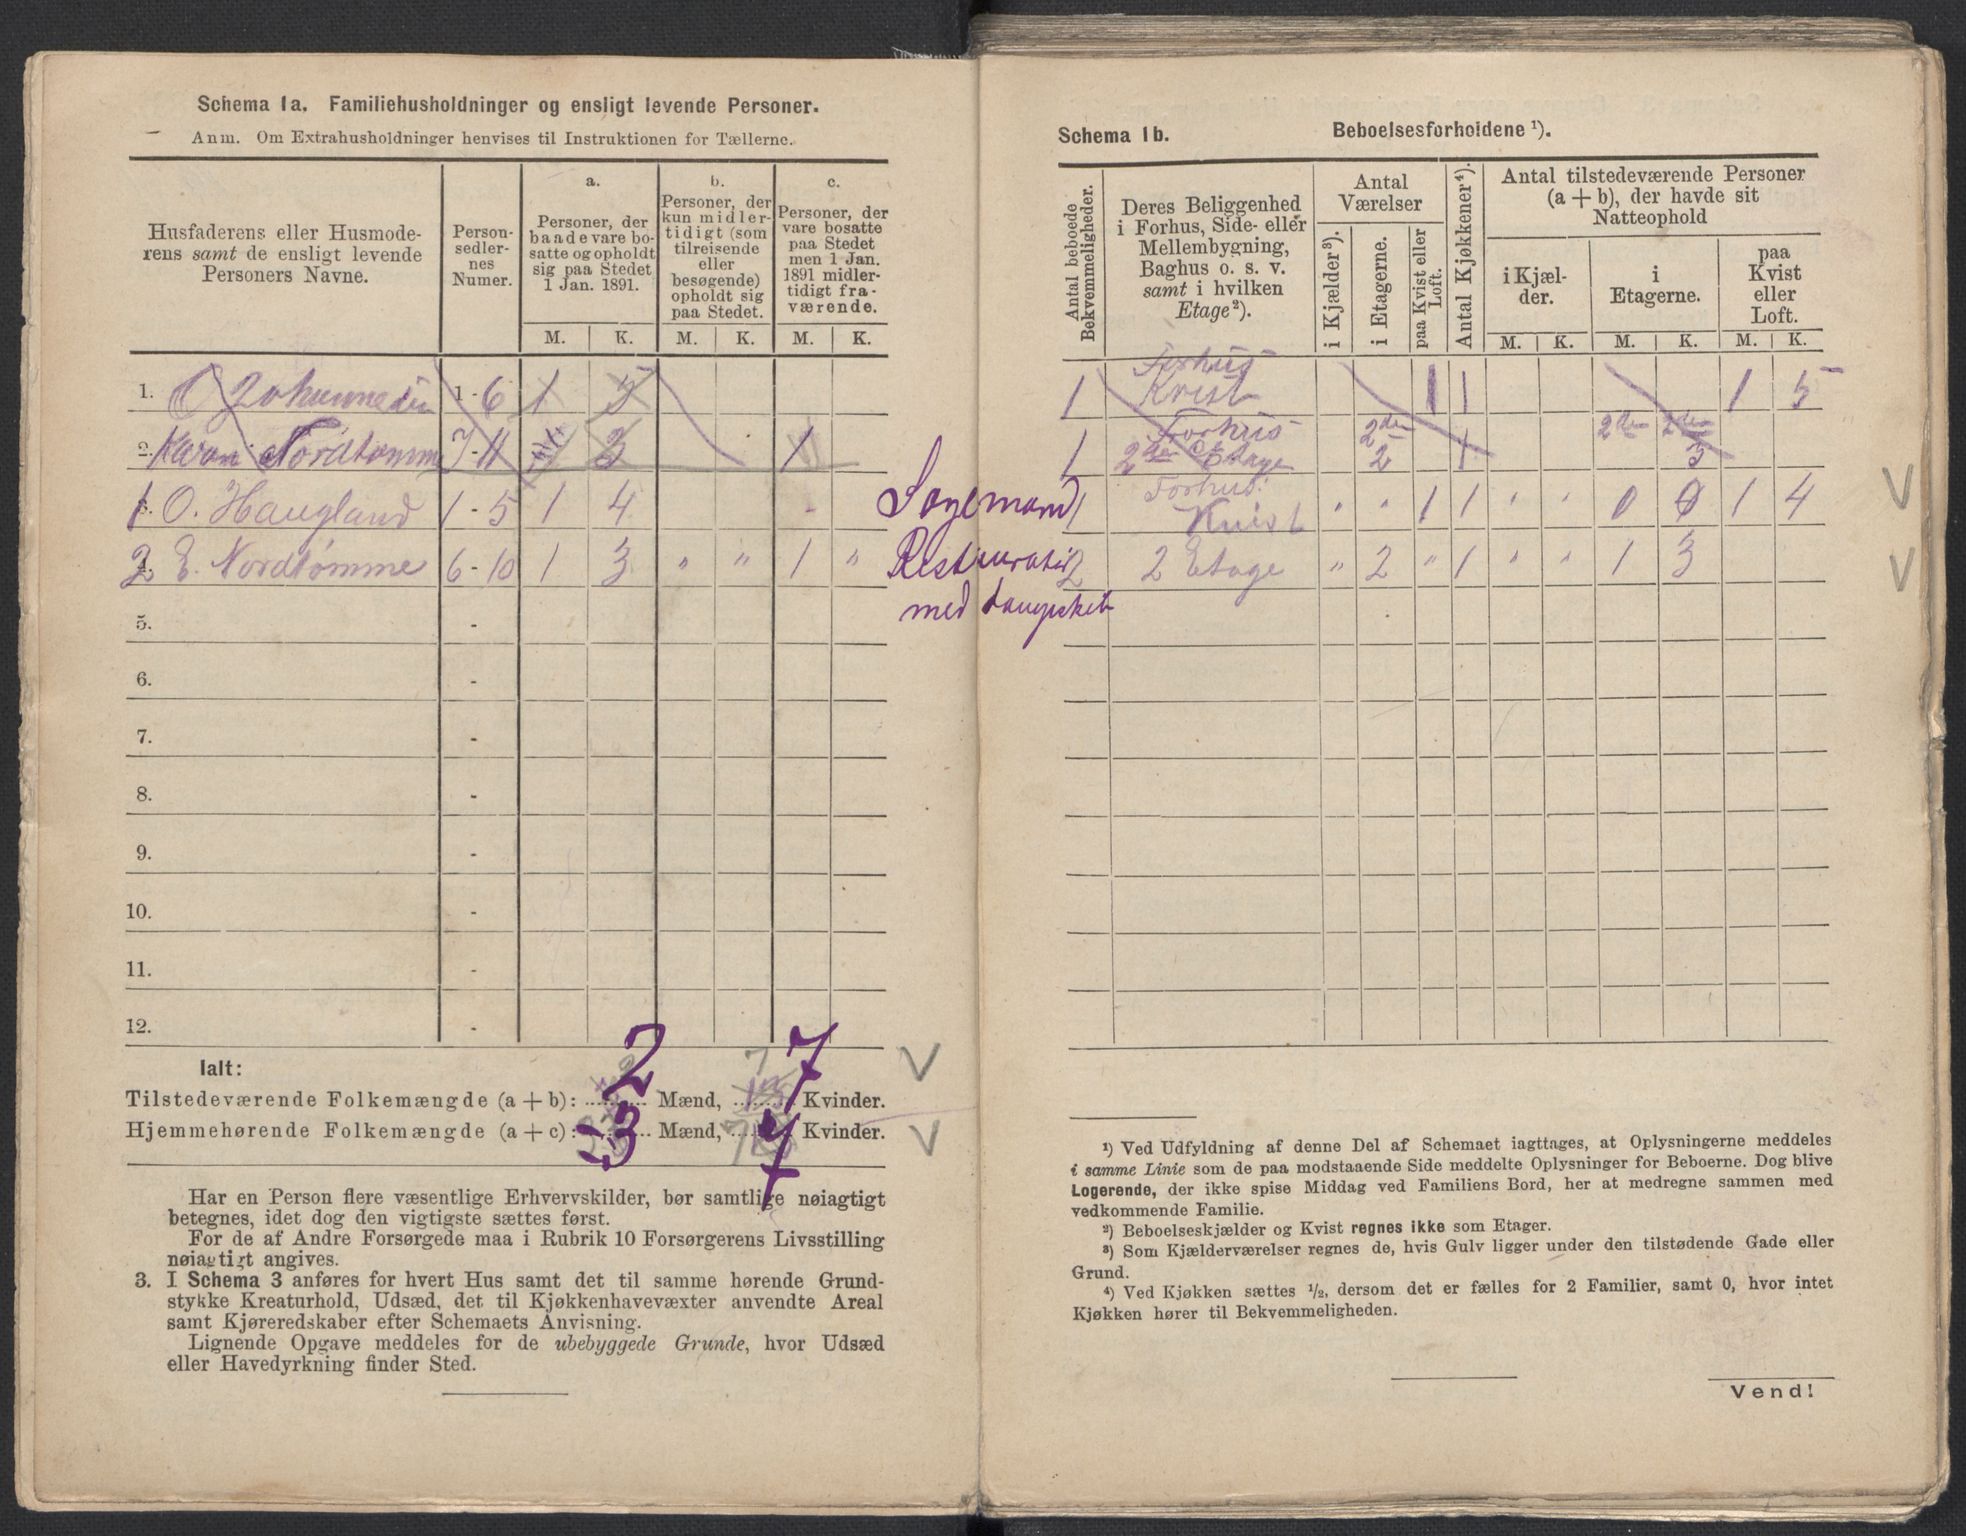 Schema 1a. Familiehusholdninger og ensligt levende Personer.
Anm. Om Extrahusholdninger henvises til Instruktionen for Tællerne.
Husfaderens eller Husmoderens samt de ensligt levende Personers Navne.
Personsedlernes Numer.
a.
Personer, der baade vare bosatte og opholdt sig paa Stedet 1 Jan. 1891.
b.
Personer, der kun midlertidigt (som tilreisende eller besøgende) opholdt sig paa Stedet.
c.
Personer, der vare bosatte paa Stedet men 1 Jan. 1891 midlertidigt fraværende.
M. K. M. K. M. K.
1. O Johannesen 1 - 6 1 5
2. Karen Nordtømme 7-11 3 1
1 3. O. Haugland 1 - 5 1 4 -
2 4. E. Nordtømme 6 - 10 1 3 " " 1 "
5. -
6. -
7. -
8. -
9. -
10. -
11. -
12. -
Ialt:
Tilstedeværende Folkemængde (a + b): 2 Mænd, 7 Kvinder.
Hjemmehørende Folkemængde (a + c): 3 Mænd, 7 Kvinder.
Har en Person flere væsentlige Erhvervskilder, bør samtlige nøiagtigt
betegnes, idet dog den vigtigste sættes først.
For de af Andre Forsørgede maa i Rubrik 10 Forsørgerens Livsstilling
nøiagtigt angives.
3. I Schema 3 anføres for hvert Hus samt det til samme hørende Grund-
stykke Kreaturhold, Udsæd, det til Kjøkkenhavevæxter anvendte Areal
samt Kjøreredskaber efter Schemaets Anvisning.
Lignende Opgave meddeles for de ubebyggede Grunde, hvor Udsæd
eller Havedyrkning finder Sted.
Schema 1b. Beboelsesforholdene ¹).
Antal beboede Bekvemmeligheder.
Deres Beliggenhed i Forhus, Side- eller Mellembygning, Baghus o. s. v. samt i hvilken Etage²).
Antal Værelser
i Kjælder³).
i Etagerne.
paa Kvist eller Loft.
Antal Kjøkkener⁴).
Antal tilstedeværende Personer (a + b), der havde sit Natteophold
i Kjælder.
i Etagerne.
paa Kvist eller Loft.
M. K. M. K. M. K.
1 Forhus Kvist 1 1 1 5
1 Forhus 2den Etage 2den 2 1 2den 2den 3
Søgemand
1 Forhus: Kvist " " 1 1 " " 0 0 1 4
2 2 Etage " 2 " 1 " " 1 3
med
¹) Ved Udfyldning af denne Del af Schemaet iagttages, at Oplysningerne meddeles
i samme Linie som de paa modstaaende Side meddelte Oplysninger for Beboerne. Dog blive
Logerende, der ikke spise Middag ved Familiens Bord, her at medregne sammen med
vedkommende Familie.
²) Beboelseskjælder og Kvist regnes ikke som Etager.
³) Som Kjælderværelser regnes de, hvis Gulv ligger under den tilstødende Gade eller
Grund.
⁴) Ved Kjøkken sættes ½, dersom det er fælles for 2 Familier, samt 0, hvor intet
Kjøkken hører til Bekvemmeligheden.
Vend!